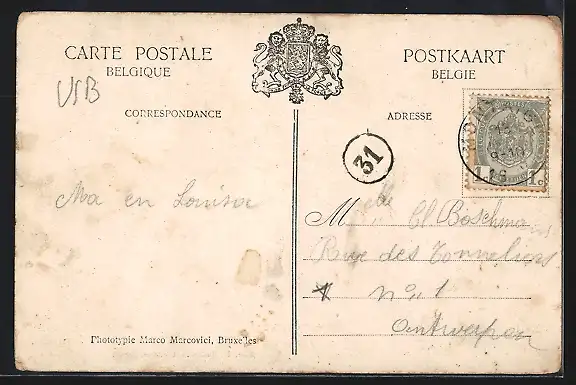 CARTE POSTALE
BELGIQUE
POSTKAART
BELGIE
VSB
CORRESPONDANCE
ADRESSE
31
1 c. 1 c.
en Louisa
Mlle Cl Boschmans
Rue des Tonneliers
No 1
Antwerpen
Phototypie Marco Marcovici, Bruxelles